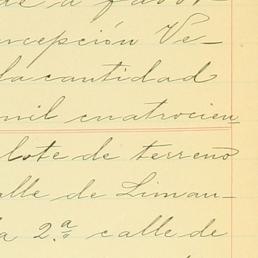 de a favor
ncepción Ve-
la cantidad
mil cuatrocien
lote de terreno
alle de Liman-
la 2.ª calle de